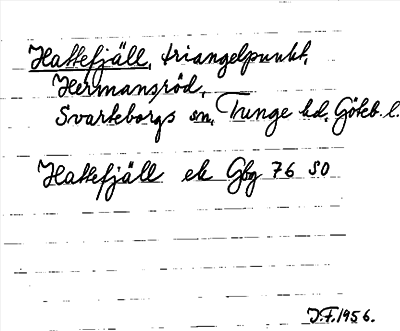 Hattefjäll, triangelpunkt,
Hermansröd,
Svarteborgs sn, Tunge hd, Göteb. l.
Hattefjäll ek Gbg 76 SO
J.F. 1956.